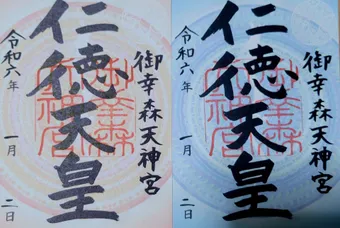 御幸森天神宮
仁徳天皇
令和六年 一月 二日
御幸森天神宮
仁徳天皇
令和六年 一月 二日